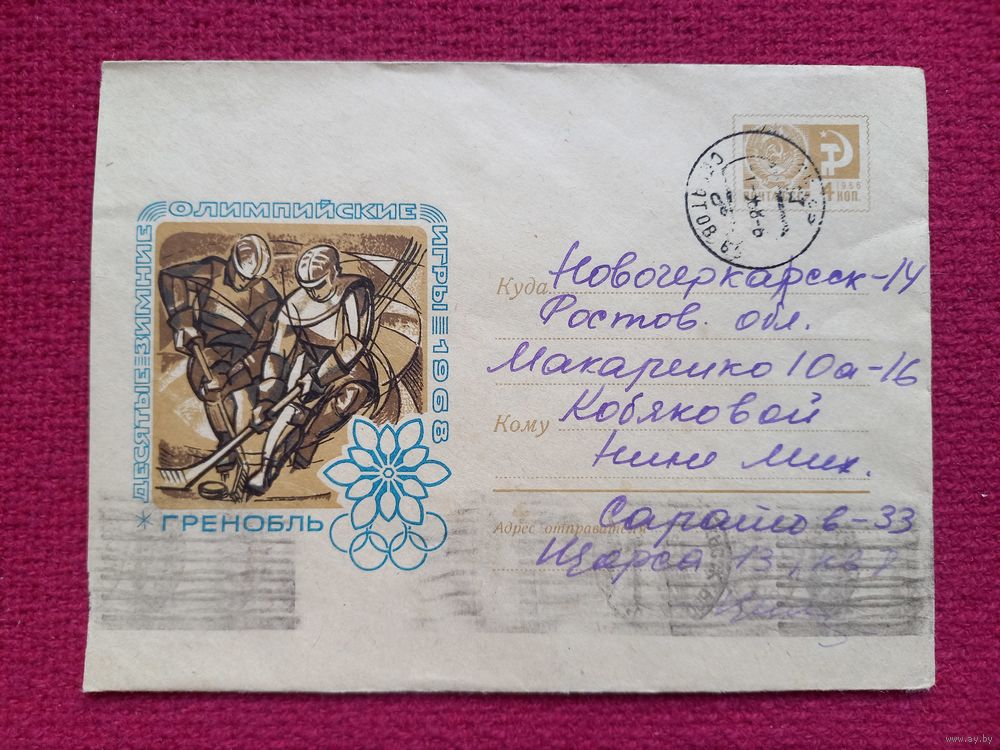 ДЕСЯТЫЕ ЗИМНИЕ
ОЛИМПИЙСКИЕ
ИГРЫ 1968
* ГРЕНОБЛЬ
1966
ПОЧТА СССР 4 КОП.
САРАТОВ
Куда Новочеркасск-14
Ростов. обл.
Макаренко 10а-16
Кому Кобяковой
Нине Мих.
Адрес отправителя Саратов-33
Щорса 13, кв 7
www.ay.by